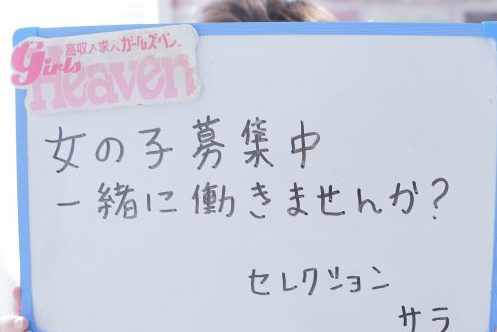 高収入求人ガールズヘブン
girls
Heaven
女の子募集中
一緒に働きませんか?
セレクション
サラ